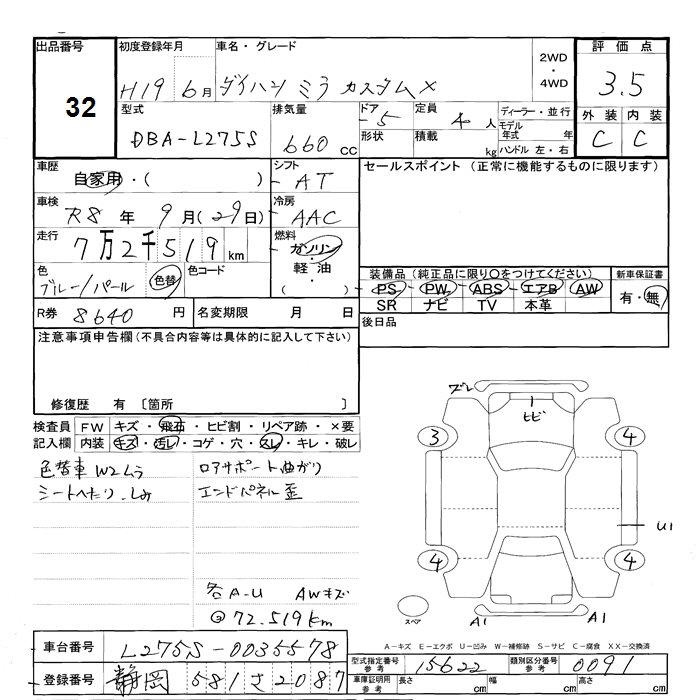 出品番号
32
初度登録年月
H19 6月
車名・グレード
ダイハツ ミラ カスタムX
2WD
・
4WD
評価点
3.5
外装 内装
C C
型式
DBA-L275S
排気量
660 cc
ドア
-5
形状
定員
4 人
積載
kg
ディーラー・並行
モデル年式 年
ハンドル 左・右
車歴
自家用・( )
シフト
AT
車検
R8 年 9月(29日)
冷房
AAC
走行
7万2千519km
燃料
ガソリン
・
軽油
( )
色
ブルー/パール
色替
色コード
R券 8640 円
名変期限 月 日
セールスポイント(正常に機能するものに限ります)
装備品(純正品に限り○をつけてください)
PS・PW・ABS・エアB・AW
SR ナビ TV 本革
新車保証書
有・無
後日品
注意事項申告欄(不具合内容等は具体的に記入して下さい)
修復歴 有 〔箇所
検査員記入欄
FW キズ・飛石・ヒビ割・リペア跡・×要
内装 キズ・汚レ・コゲ・穴・スレ・キレ・破レ
色替車 W2ムラ
シートへたり、しみ
ロアサポート曲がり
エンドパネル歪
各A-U AWキズ
@72.519km
ズレ
ヒビ
3
4
4
4
U1
A1
A1
スペア
A-キズ E-エクボ U-凹み W-補修跡 S-サビ C-腐食 XX-交換済
車台番号
L275S-0035578
登録番号
静岡 581 さ 2087
型式指定番号 参考
15622
類別区分番号 参考
0091
車庫証明用 参考
長さ cm
幅 cm
高さ cm